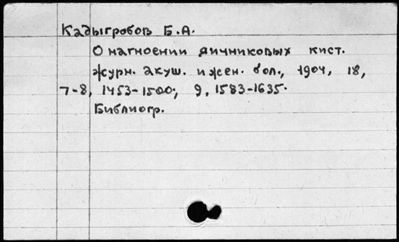 Кадыгробов Б.А.
О нагноении яичниковых кист.
Журн. акуш. и жен. бол., 1904, 18,
7-8, 1453-1500; 9, 1583-1635.
Библиогр.